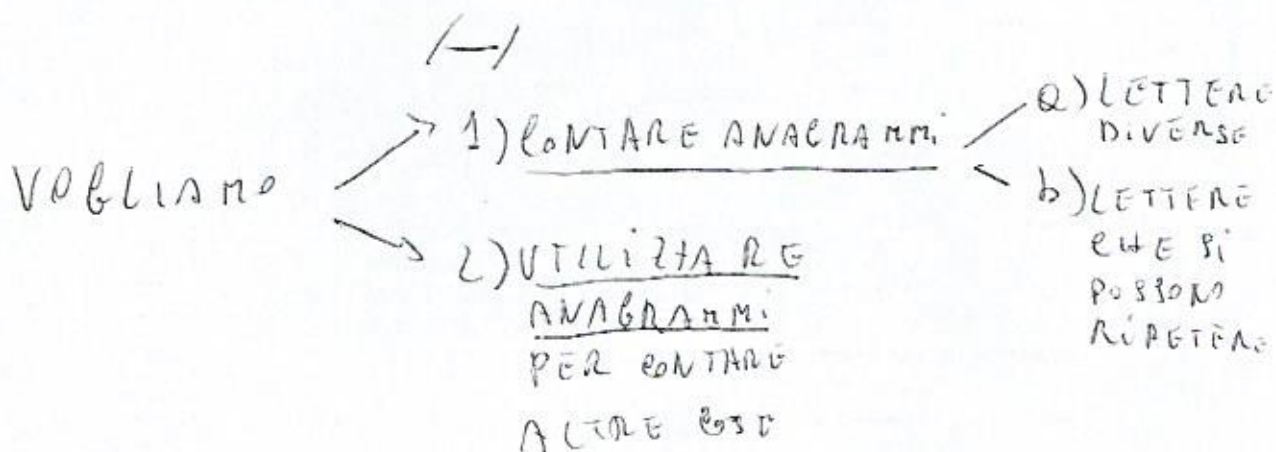 /—/
VOGLIAMO
1) CONTARE ANAGRAMMI
a) LETTERE
DIVERSE
b) LETTERE
CHE SI
POSSONO
RIPETERE
2) UTILIZZARE
ANAGRAMMI
PER CONTARE
ALTRE COSE